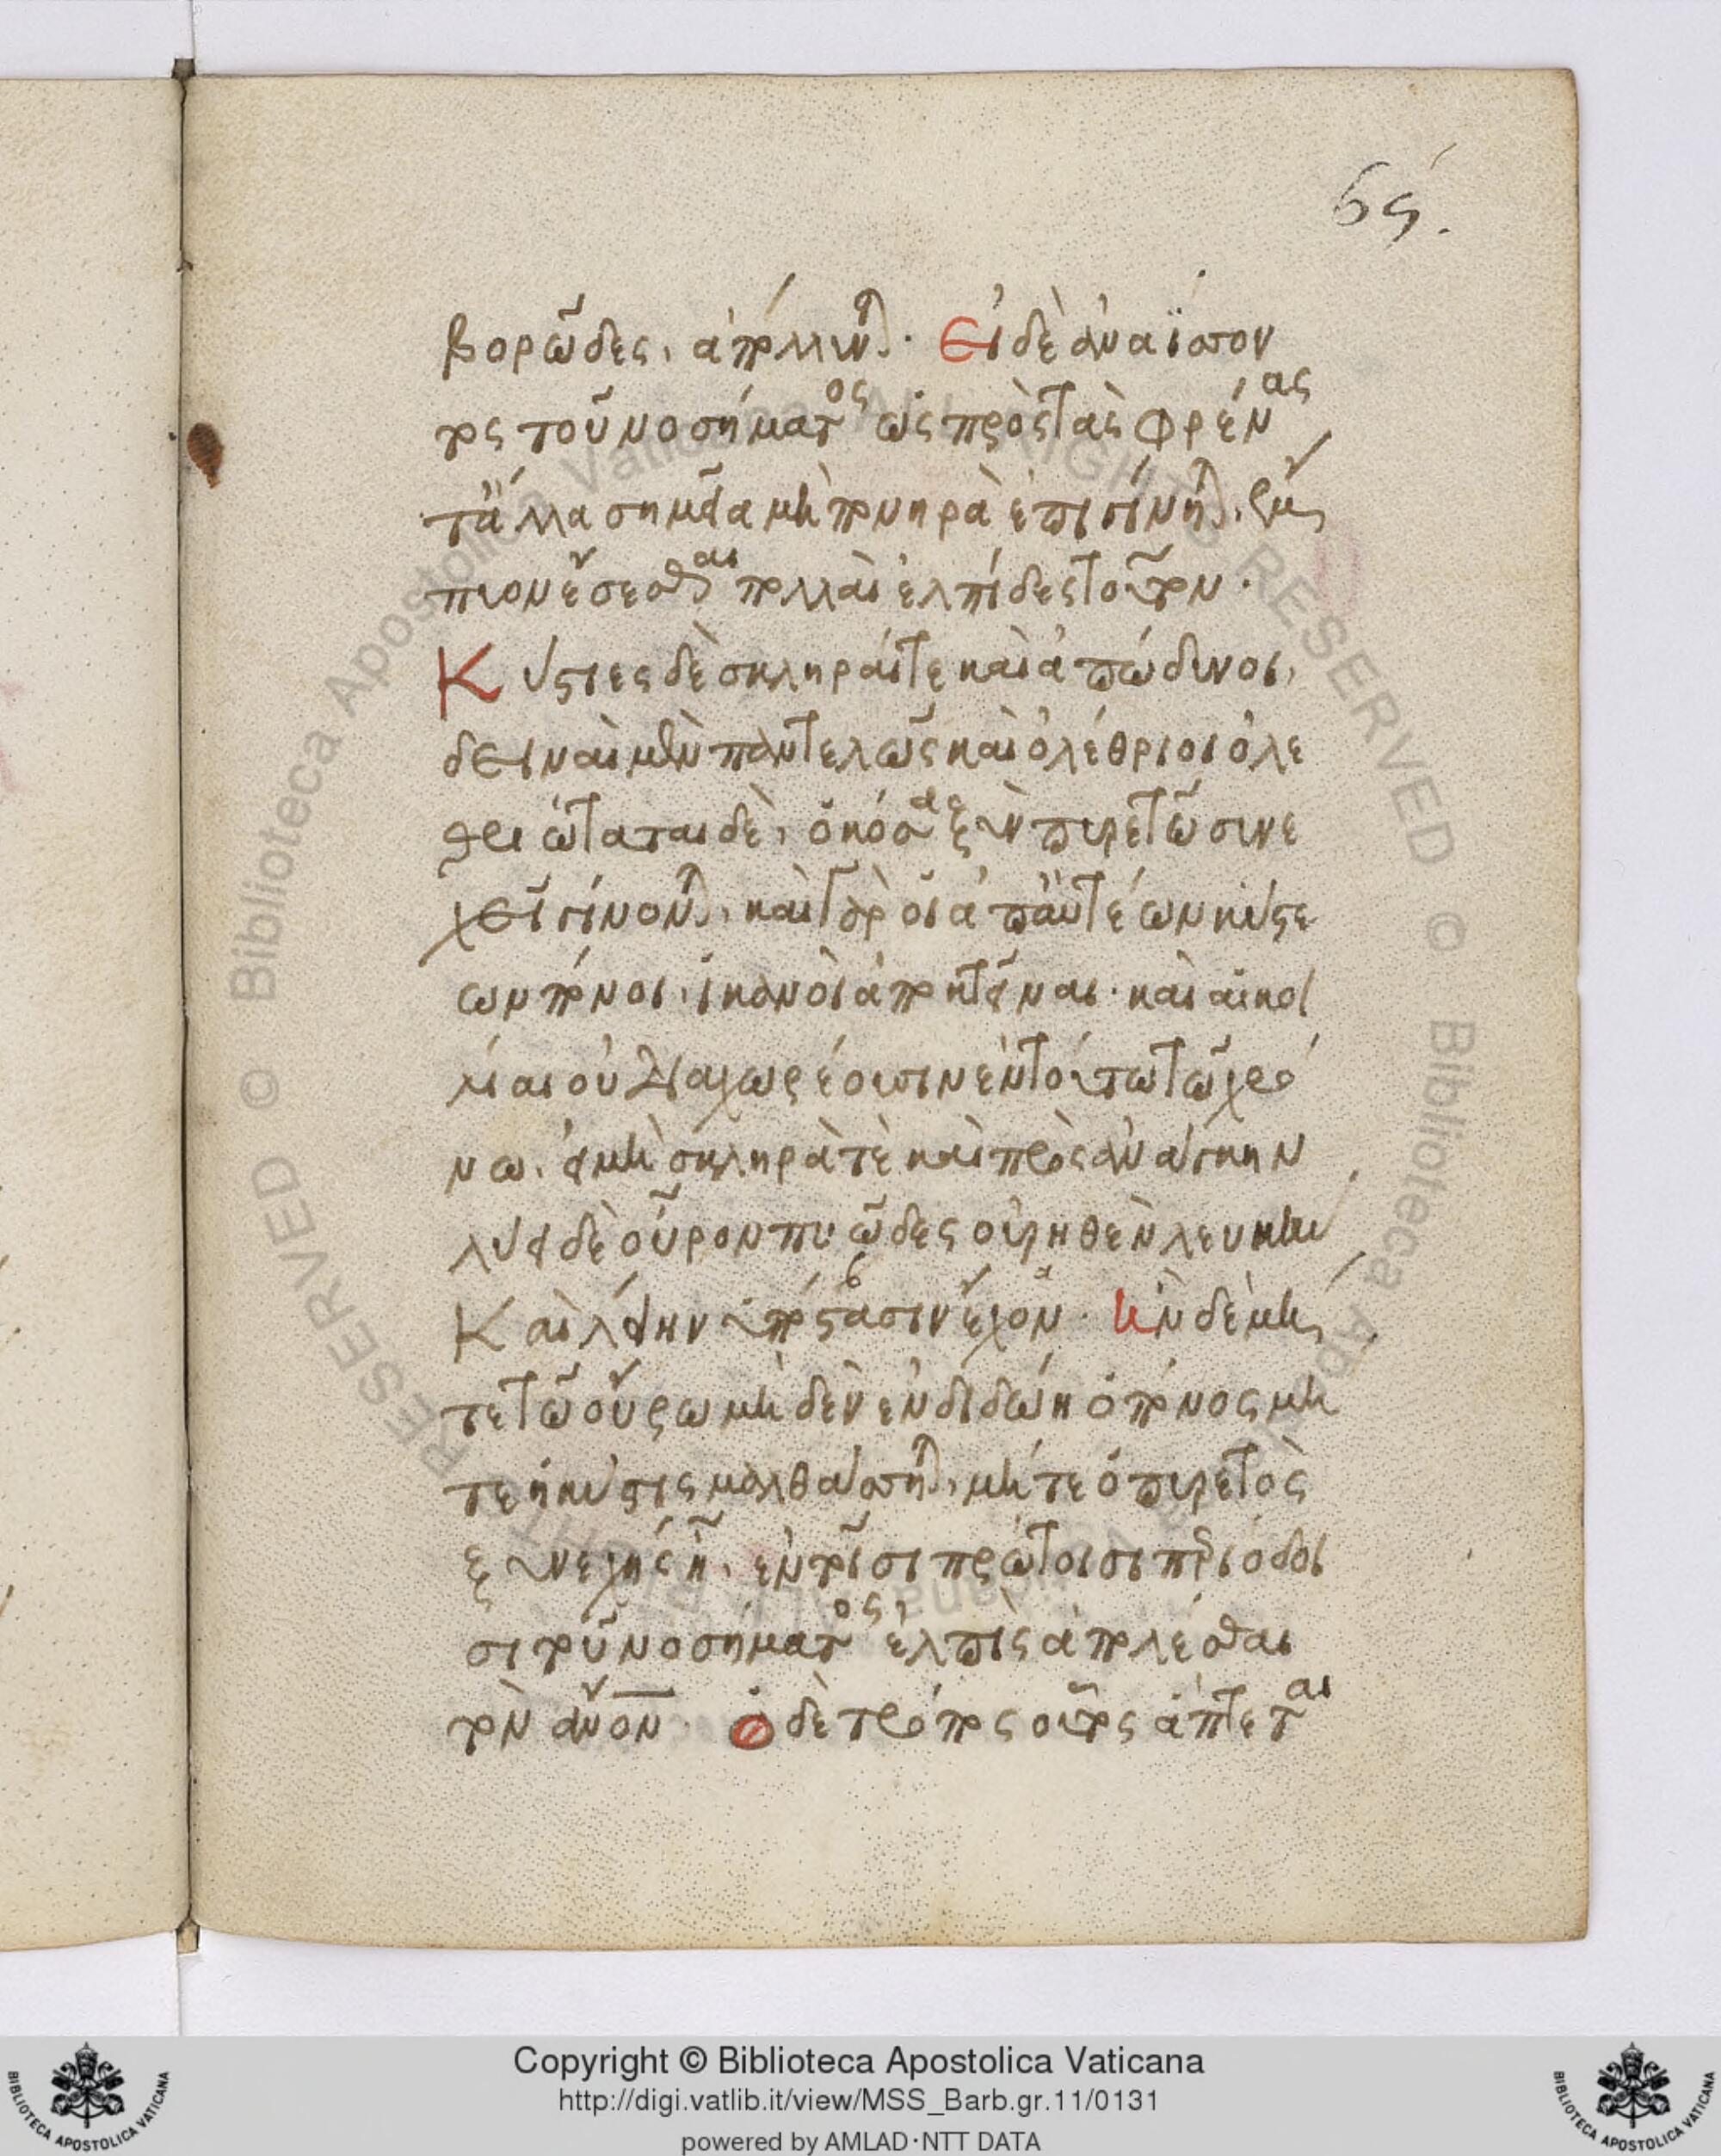 65.
βορῶδες, ἀπόλλυνται. Εἰ δὲ ἀναΐσσον
τος τοῦ νοσήματος ὡς πρὸς τὰς φρένας
τἄλλα σημεῖα μὴ πονηρὰ ἐπιγίνηται,
πυον ἔσεσθαι πολλαὶ ἐλπίδες τούτων.
Κύστιες δὲ σκληραί τε καὶ ἐπώδυνοι,
δειναὶ μὲν παντελῶς καὶ ὀλέθριοι ὀλε
θριώταται δὲ, ὁκόσαι ξὺν πυρετῷ συνε
χεῖ γίνονται, καὶ γὰρ οἱ ἀπ' αὐτέων κύστε
ων πόνοι, ἱκανοὶ ἀποκτεῖναι. καὶ αἱ κοι
λίαι οὐ διαχωρέουσιν ἐν τούτῳ τῷ χρό
νῳ, εἰ μὴ σκληρά τε καὶ πρὸς ἀνάγκην
λύει δὲ οὖρον πυῶδες οὐρηθὲν λευκὴν
Καὶ λείην ὑπόστασιν ἔχον. Ἢν δὲ μή
τε τῷ οὔρῳ μηδὲν ἐνδιδώῃ ὁ πόνος μή
τε ἡ κύστις μαλθάσσηται, μήτε ὁ πυρετὸς
ξυνεχὴς ᾖ, ἐν τῇσι πρώτοισι περιόδοι
σι τοῦ νοσήματος, ἐλπὶς ἀπολέσθαι
τὸν ἄνον. ὁ δὲ τρόπος οὗτος ἅπτεται
Copyright © Biblioteca Apostolica Vaticana
http://digi.vatlib.it/view/MSS_Barb.gr.11/0131
powered by AMLAD·NTT DATA